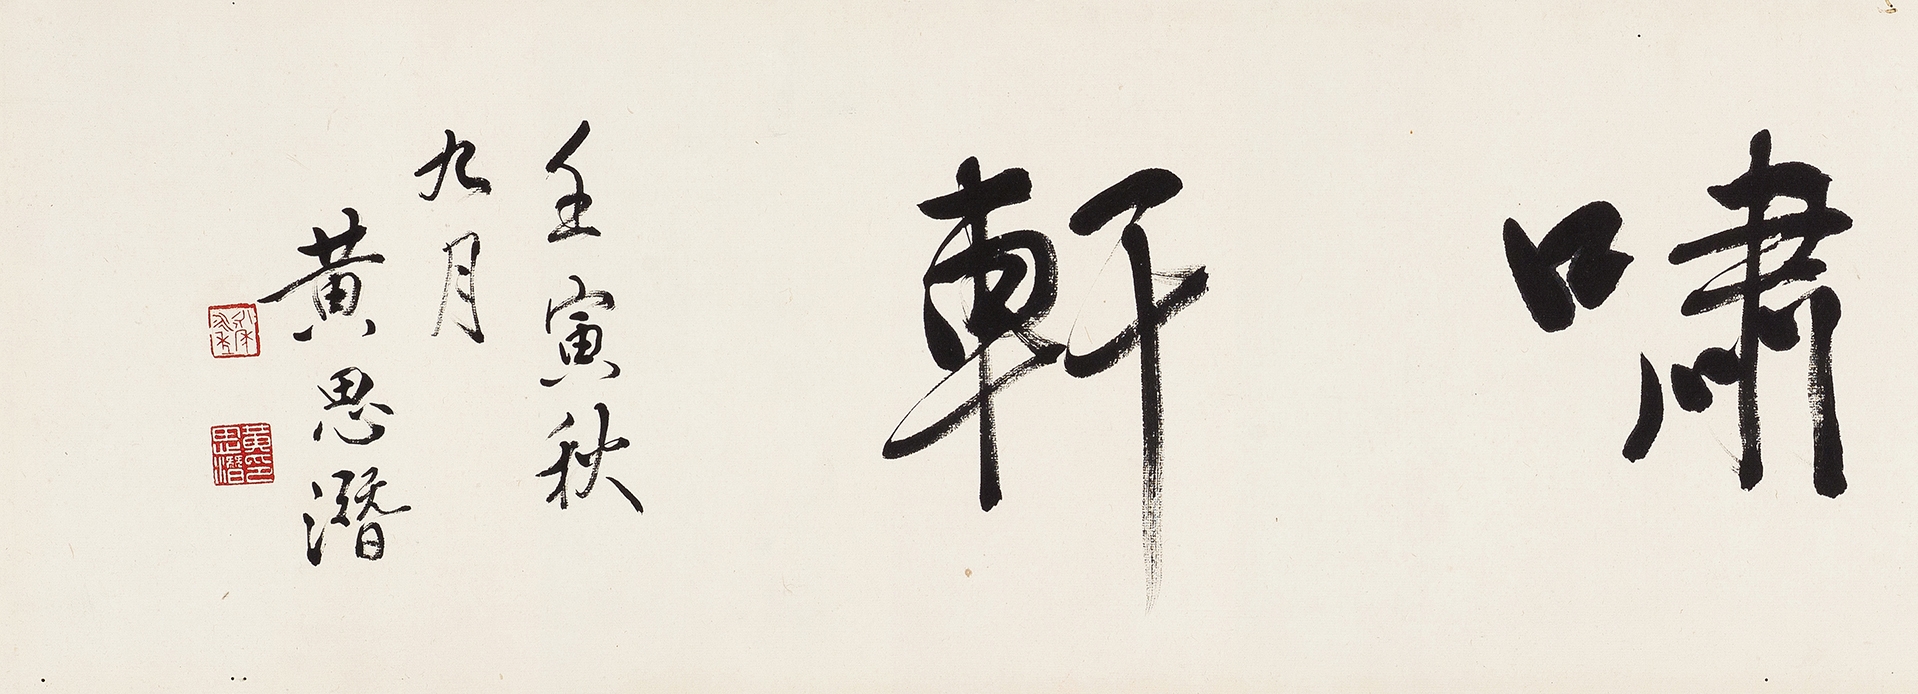 嘯軒
壬寅秋
九月
黃思潛
黃思潛印